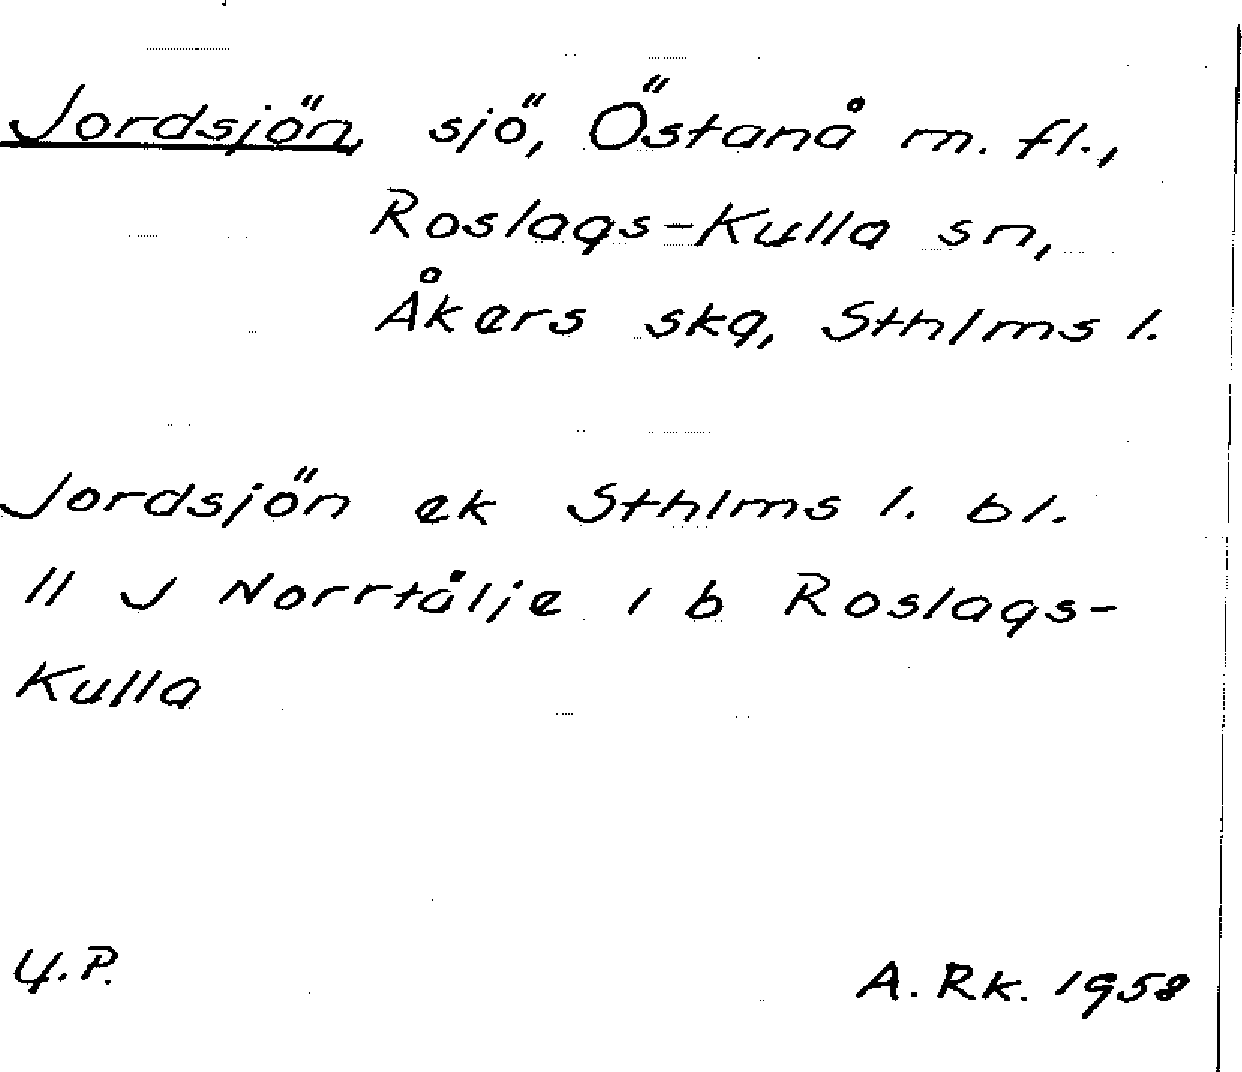 Jordsjön, sjö, Östanå m. fl.,
Roslags-Kulla sn,
Åkers skg, Sthlms l.
Jordsjön ek Sthlms l. bl.
11 J Norrtälje 1 b Roslags-
Kulla
Y.P.
A. Rk. 1958